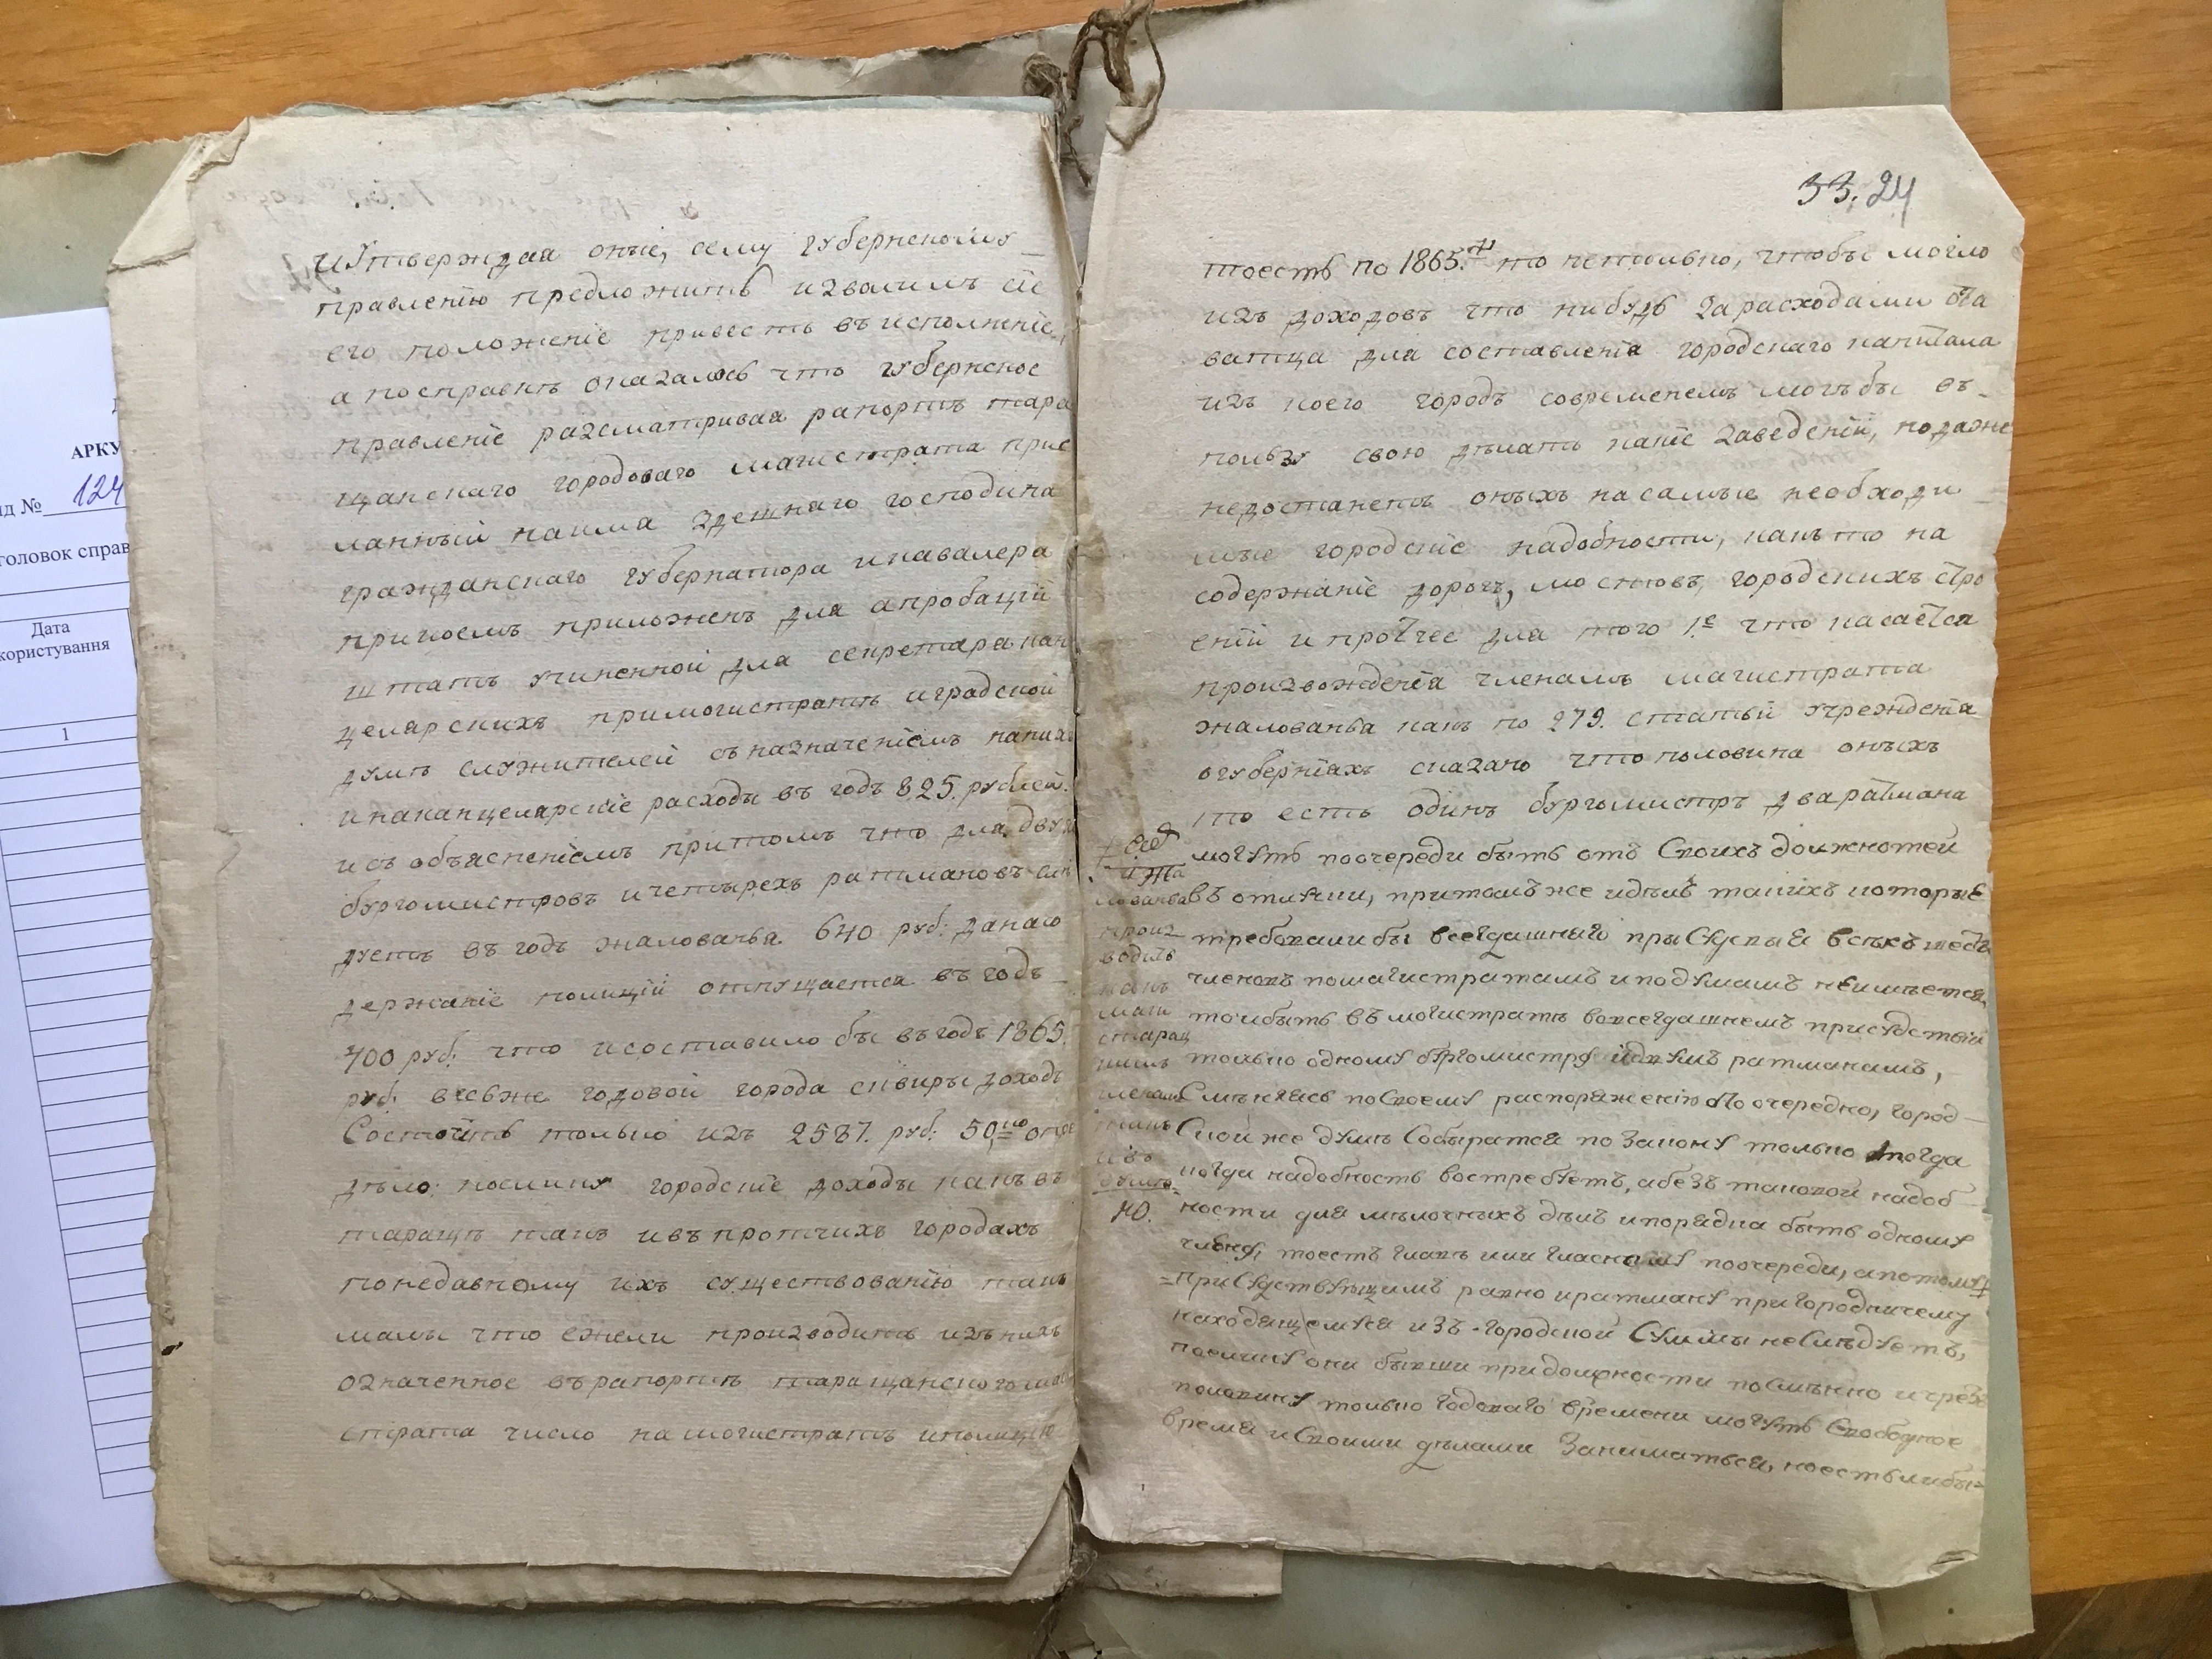 АРКУ
нд № 124
головок справ
Дата
користування
1
иутверждая оные, сему губернскому
правлению предложить изволилъ сіе
его положеніе привесть въ исполненіе,
а посправкѣ оказалось что губернское
правленіе разсматривая рапортъ тара
щанскаго городоваго магистрата прис
ланный наимя здешнаго господина
гражданскаго губернатора икавалера
прикоемъ приложенъ для апробаціи
штатъ учиненной для секретаря кан
целярскихъ примагистратѣ иградской
думѣ служителей съ назначеніемъ какихъ
инаканцелярскіе расходы въ годъ 825. рублей.
исъ объясненіемъ притомъ что для двухъ
бургомистровъ ичетырехъ ратмановъ слѣ
дуетъ въ годъ жалованья 640 руб: данасо
держаніе полиціи отпущается въ годъ
400 руб: что исоставило бы въ годъ 1865.
руб: весьже годовой города сквиры доходъ
Состоитъ только изъ 2587. руб: 50, ко опре
дѣло: поелику городскіе доходы какъ въ
таращѣ такъ ивъ протчихъ городахъ
понедавному ихъ существованію такъ
малы что ежели производить изъ нихъ
означенное върапортѣ таращанскогомаги
страта число намагистратъ иполицію
33. 24
тоесть по 1865. + то нетолько, чтобы могло
изъ доходовъ что нибудь зарасходами ста
ватца для составленія городскаго капитала
изъ коего городъ современемъ могъбы въ
пользу свою дѣлать какіе заведеніи, нодаже
недостанетъ оныхъ насамые необходи
мые городскіе надобности, какъ то на
содержаніе дорогъ, мостовъ, городскихъ стро
еній и протчее для того 1.е что касается
произвожденія членамъ магистрата
жалованья какъ по 279. статьи учрежденія
огуберніяхъ сказано что половина оныхъ
то есть одинъ бургомистръ дваратмана
могутъ поочереди быть отъ Своихъ должностей
въ отлучки, притомъ же идѣлъ такихъ которые
требовалибы всегдашняго присудствія всѣхъ
членовъ помагистратамъ иподумамъ неимѣется,
тоибыть въ магистратѣ вовсегдашнемъ присудствіи
только одному бургомистру идвумъ ратманамъ,
Смѣняясь посвоему распоряженію поочередно, город
Ской же думѣ Собыратся по закону только тогда
когда надобность востребуетъ, абезъ таковой надоб
ности для мѣлочныхъ дѣлъ ипорядка быть одному
члену, тоесть главѣ или гласному поочереди, апотому +
присудствующимъ равно иратману пригородничему
находящемуся изъ городской Суммы неслѣдуетъ,
поелику они бывши придолжности посмѣнно и чрезъ
половину только годоваго времени могутъ Свободное
время иСвоими дѣлами Заниматься, ноестьлибы
+
и жа
лованья
произ
водить
какъ
маги
страц
кимъ
членамъ
такъ
ивъ
думѣ
Ю.